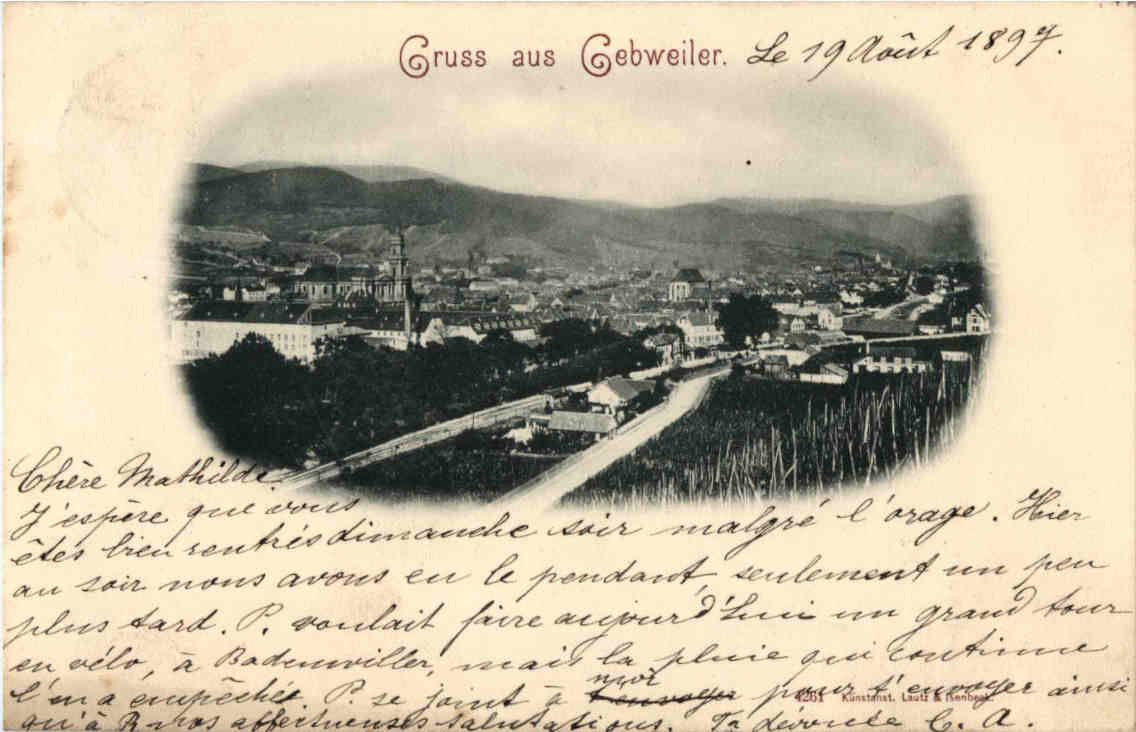 Gruss aus Gebweiler. Le 19 Août 1897.
Chère Mathilde
J'espère que vous
êtes bien rentrés dimanche soir malgré l'orage. Hier
au soir nous avons eu le pendant, seulement un peu
plus tard. P. voulait faire aujourd'hui un grand tour
en vélo, à Badenwiller, mais la pluie qui continue
l'en a empêchée. P. se joint à moi pour t'envoyer ainsi
qu'à nos affectueuses salutations. Ta dévouée C. A.
4261 Kunstanst. Lautz & Isenbeck.